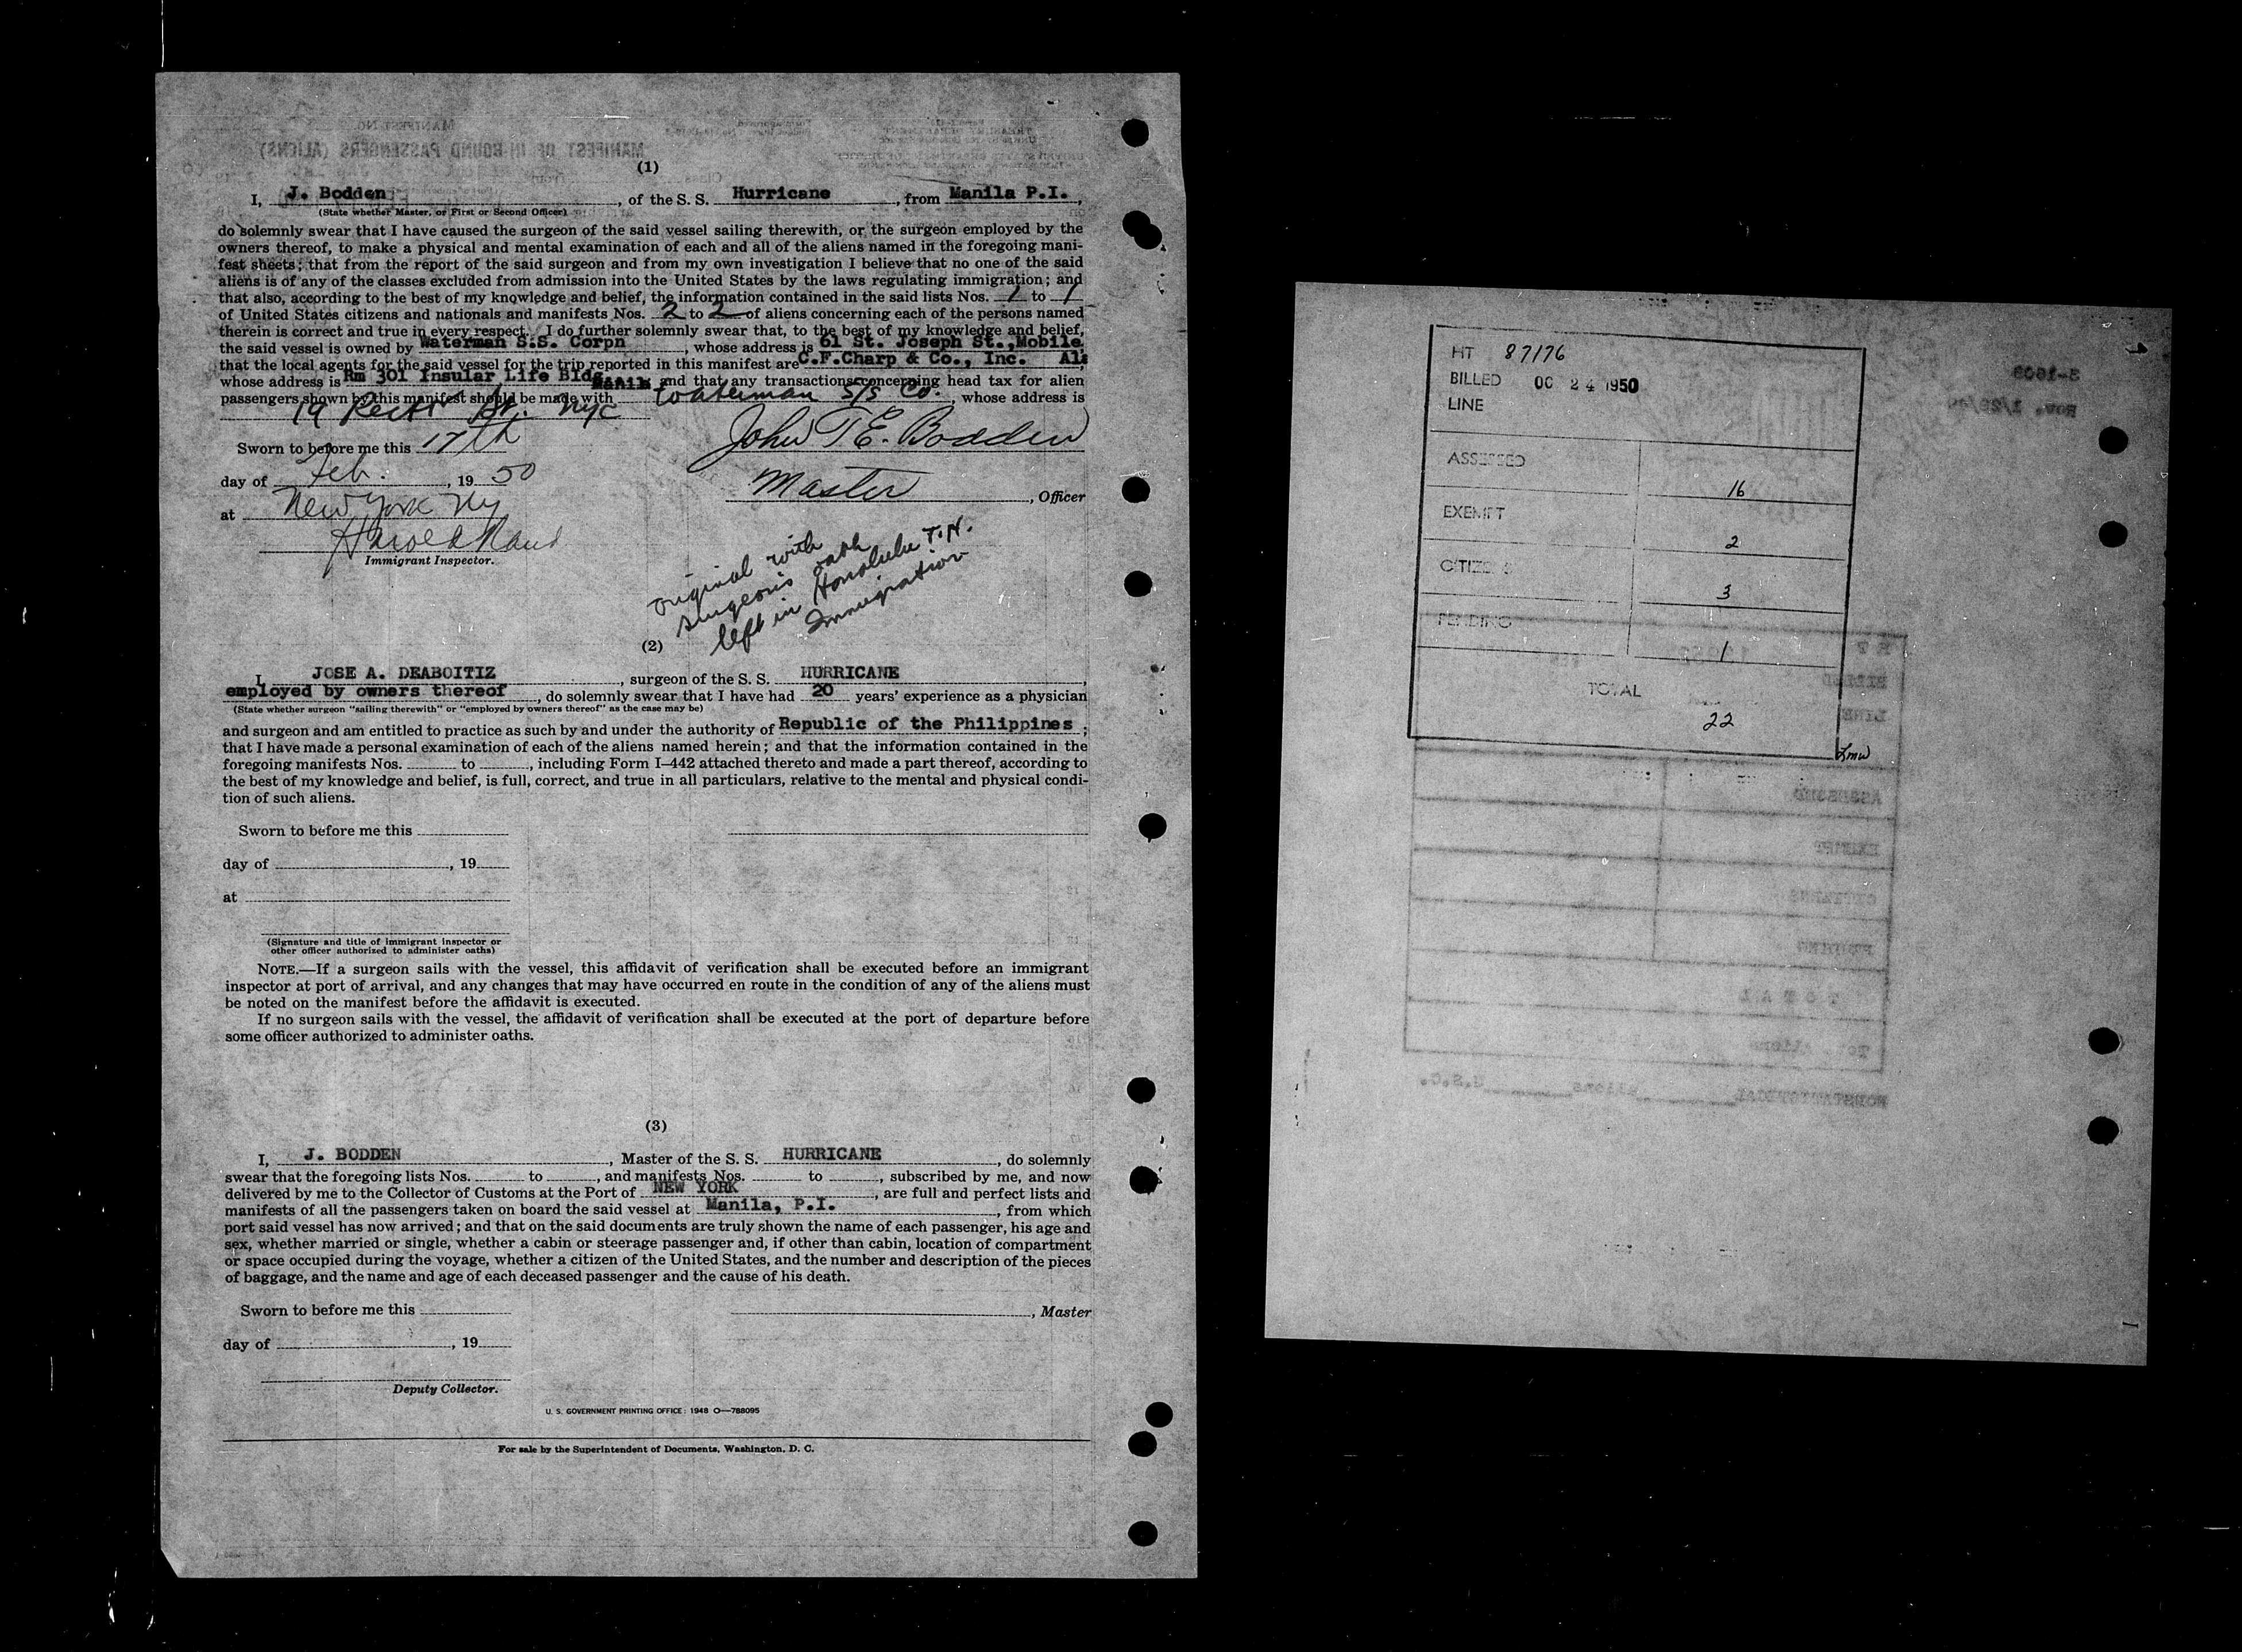 (1)
I, J. Bodden, of the S. S. Hurricane, from Manila P.I.,
(State whether Master, or First or Second Officer)
do solemnly swear that I have caused the surgeon of the said vessel sailing therewith, or the surgeon employed by the
owners thereof, to make a physical and mental examination of each and all of the aliens named in the foregoing mani-
fest sheets; that from the report of the said surgeon and from my own investigation I believe that no one of the said
aliens is of any of the classes excluded from admission into the United States by the laws regulating immigration; and
that also, according to the best of my knowledge and belief, the information contained in the said lists Nos. 1 to 1
of United States citizens and nationals and manifests Nos. 2 to 2 of aliens concerning each of the persons named
therein is correct and true in every respect. I do further solemnly swear that, to the best of my knowledge and belief,
the said vessel is owned by Waterman S.S. Corpn, whose address is 61 St. Joseph St., Mobile.
that the local agents for the said vessel for the trip reported in this manifest are C.F.Charp & Co., Inc. Ala
whose address is Rm 301 Insular Life Bldg Manila and that any transactions concerning head tax for alien
passengers shown by this manifest should be made with Waterman S/S Co., whose address is
19 Rector St. NYC
Sworn to before me this 17th
John T E. Bodden
day of Feb., 19 50
Master, Officer
at New York Ny
Harold
Immigrant Inspector.
original with
surgeon's oath
left in Honolulu T.H.
Immigration
(2)
I, JOSE A. DEABOITIZ, surgeon of the S. S. HURRICANE,
employed by owners thereof, do solemnly swear that I have had 20 years' experience as a physician
(State whether surgeon "sailing therewith" or "employed by owners thereof" as the case may be)
and surgeon and am entitled to practice as such by and under the authority of Republic of the Philippines;
that I have made a personal examination of each of the aliens named herein; and that the information contained in the
foregoing manifests Nos. to , including Form I-442 attached thereto and made a part thereof, according to
the best of my knowledge and belief, is full, correct, and true in all particulars, relative to the mental and physical condi-
tion of such aliens.
Sworn to before me this
day of , 19
at
(Signature and title of immigrant inspector or
other officer authorized to administer oaths)
NOTE.—If a surgeon sails with the vessel, this affidavit of verification shall be executed before an immigrant
inspector at port of arrival, and any changes that may have occurred en route in the condition of any of the aliens must
be noted on the manifest before the affidavit is executed.
If no surgeon sails with the vessel, the affidavit of verification shall be executed at the port of departure before
some officer authorized to administer oaths.
(3)
I, J. BODDEN, Master of the S. S. HURRICANE, do solemnly
swear that the foregoing lists Nos. to , and manifests Nos. to , subscribed by me, and now
delivered by me to the Collector of Customs at the Port of NEW YORK, are full and perfect lists and
manifests of all the passengers taken on board the said vessel at Manila, P.I., from which
port said vessel has now arrived; and that on the said documents are truly shown the name of each passenger, his age and
sex, whether married or single, whether a cabin or steerage passenger and, if other than cabin, location of compartment
or space occupied during the voyage, whether a citizen of the United States, and the number and description of the pieces
of baggage, and the name and age of each deceased passenger and the cause of his death.
Sworn to before me this
, Master
day of , 19
Deputy Collector.
U. S. GOVERNMENT PRINTING OFFICE: 1948 O—788095
For sale by the Superintendent of Documents, Washington, D. C.
HT 87176
BILLED OC 24 1950
LINE
ASSESSED 16
EXEMPT 2
CITIZENS 3
PENDING 1
TOTAL 22
Lmw